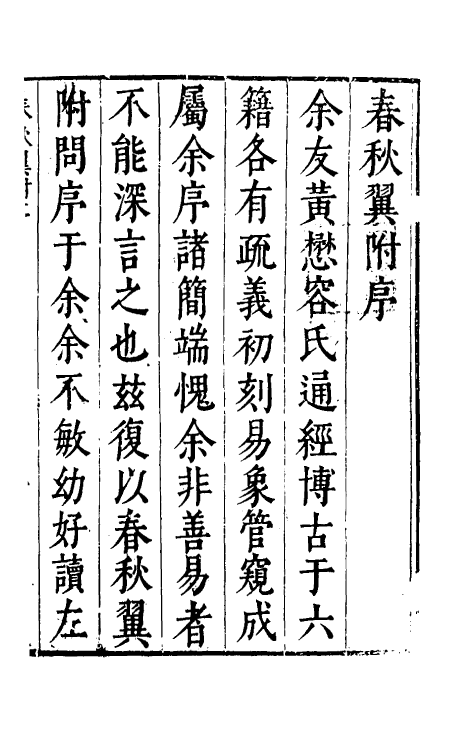 春秋翼附序
余友黃懋容氏通經博古于六
籍各有疏義初刻易象管窺成
屬余序諸簡端愧余非善易者
不能深言之也茲復以春秋翼
附問序于余余不敏幼好讀左